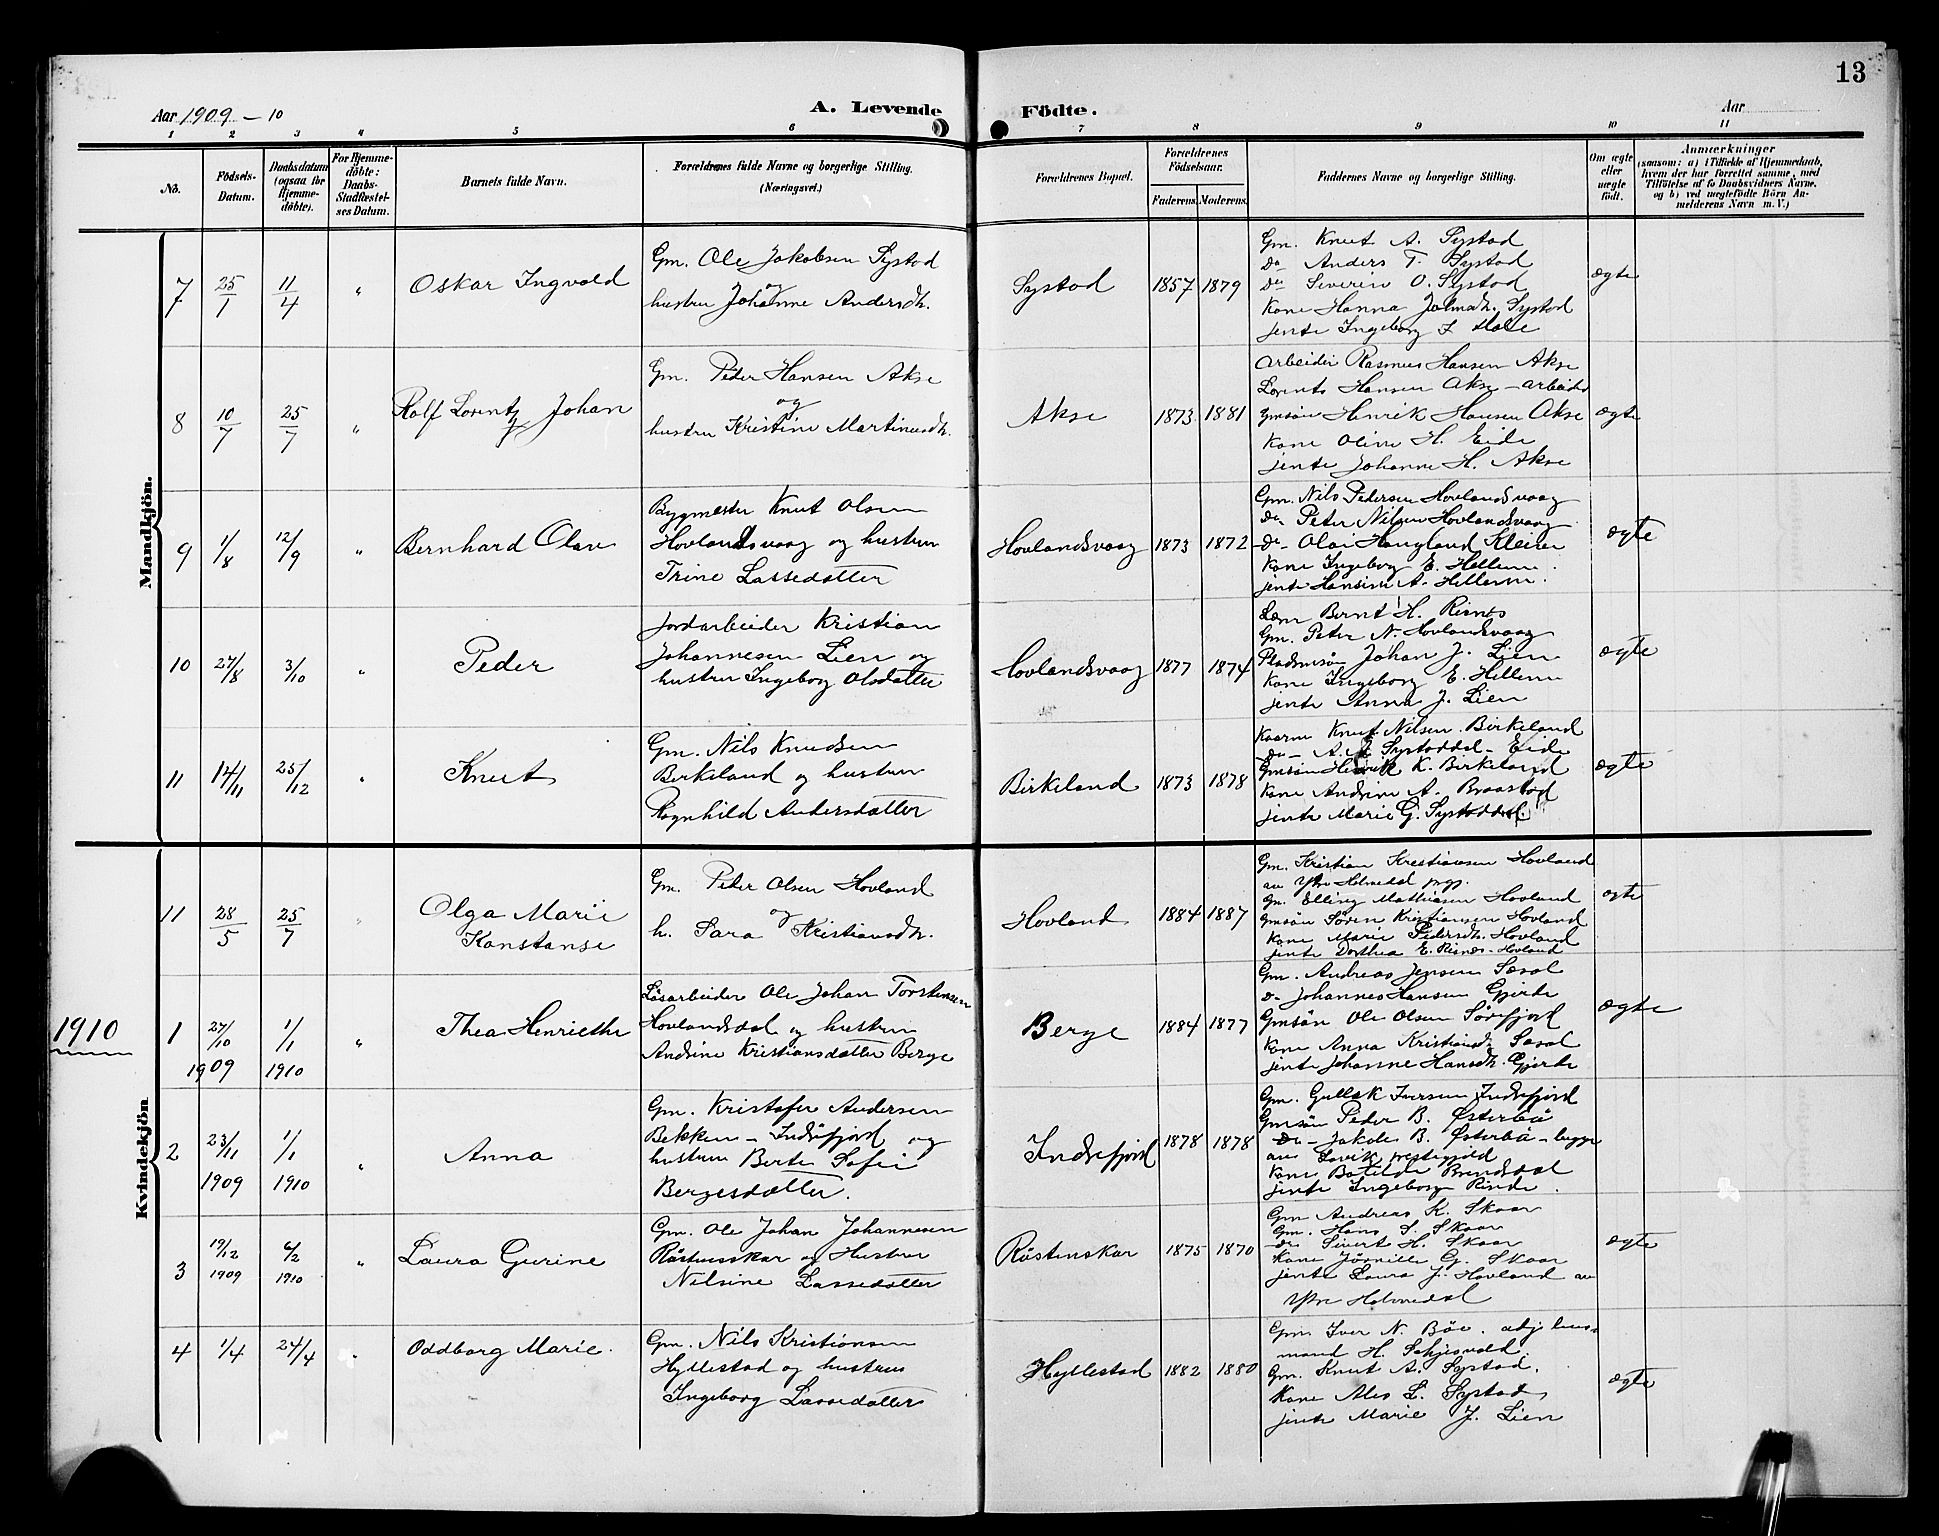 13
Aar 1909 – 10
A. Levende Födte.
Aar
1 2 3 4 5 6 7 8 9 10 11
No.
Födsels-Datum.
Daabsdatum (ogsaa for Hjemme-döbte).
For Hjemme-döbte: Daabs-Stadfæstel-ses Datum.
Barnets fulde Navn.
Forældrenes fulde Navne og borgerlige Stilling.
(Næringsvei.)
Forældrenes Bopæl.
Forældrenes Födselsaar.
Faderens. Moderens.
Faddernes Navne og borgerlige Stilling.
Om ægte eller uægte födt.
Anmærkninger
(saasom: a) i Tilfælde af Hjemmedaab,
hvem der har forrettet samme, med
Tilföielse af to Daabsvidners Navne,
og b) ved uægtefödte Börn An-
melderens Navn m. V.)
Mandkjön.
7 25/1 11/4 " Oskar Ingvald
Gm. Ole Jakobsen Systad
og
hustru Johanne Andersdtr.
Systad 1857 1879
Gm. Knut A. Systad
Do Anders T. Systad
Do Severin O. Systad
Kone Hanna Systad
jente Ingeborg
ægte
8 10/7 25/7 " Rolf Lorentz Johan
Gm. Peder Hansen Akse
og
hustru Kristine Martinusdtr.
Akse 1873 1881
Arbeider Rasmus Hansen Akse
Lorents Hansen Akse – arbeider
Gmsön Henrik Hansen Akse
Kone Oline H. Eide
jente Johanne H. Akse
ægte
9 1/8 12/9 " Bernhard Olav
Bygmester Knut Olsen
Hovlandsvaag og hustru
Trine Lassedatter
Hovlandsvaag 1873 1872
Gm. Nils Pedersen Hovlandsvaag
Do Peter Nilsen Hovlandsvaag
Do Olai Haugland
Kone Ingeborg E. Hellem.
jente Hansine A. Hellem.
ægte
10 27/8 3/10 " Peder
Jordarbeider Kristian
Johannesen Lien og
hustru Ingeborg Olsdatter
Hovlandsvaag 1877 1874
Bernt H. Risnes
Gm. Peter N. Hovlandsvaag
Johan J. Lien
Kone Ingeborg E. Hellem
jente Anna J. Lien
ægte
11 14/11 25/12 " Knut
Gm. Nils Knudsen
Birkeland og hustru
Ragnhild Andersdatter
Birkeland 1873 1878
Kaarm Knut Nilsen Birkeland
Do – A. Systaddal – Eide
Gmsön Henrik K. Birkeland
Kone Andrine A. Braastad
jente Marie G. Systaddal
ægte
Kvindekjön
11 28/5 25/7 " Olga Marie
Konstanse
Gm. Peder Olsen Hovland
og
h. Sara Kristiansdtr.
Hovland 1884 1887
Gm. Kristian Kristiansen Hovland
av Ytre Holmedal prgj.
Gm. Elling Mathiasen Hovland
Gmsön Sören Kristiansen Hovland
Kone Marie Pedersdtr. Hovland
jente Dorthea E. Risnes – Hovland
ægte
1910
1 27/10 1909 1/1 1910 " Thea Henriethe
Lösarbeider Ole Johan Torstensen
Hovlandsdal og hustru
Andrine Kristiansdatter Berge
Berge 1884 1877
Gm. Andreas Jensen Sæsol
Do Johannes Hansen Gjerde
Gmsön Ole Olsen Sörefjord
Kone Anna Kristiansdtr. Sæsol
jente Johanne Hansdtr. Gjerde
ægte
2 23/11 1909 1/1 1910 " Anna
Gm. Kristofer Andersen
Bekken – Indrefjord og
hustru Berte Sofie
Bergesdatter.
Indrefjord 1878 1878
Gm. Gullek Iversen Indrefjord
Gmsön Peder B. Österbö
Do – Jakob B. Österbö – begge
av Lavik prestegjeld
Kone Botilde Brendsdal
jente Ingeborg Rinde.
3 19/12 1909 6/2 1910 " Laura Gurine
Gm. Ole Johan Johannesen
Råstenskar og Hustru
Nilsine Lassedatter
Råstenskar 1875 1870
Gm Andreas K. Skaar
Gm. Hans S. Skaar
Do. Sivert H. Skaar
Kone Jörnille G. Skaar
jente Laura J. Hovland av
Ytre Holmedal
ægte
4 1/4 24/4 " Oddborg Marie.
Gm. Nils Kristiansen
Hyllestad og hustru
Ingeborg Lassedatter
Hyllestad 1882 1880
Gm Iver N. Böe. adj. lens-
mand H.
Gm. Knut A. Systad.
Kone Ales L. Systad
jente Marie J. Lien
ægte